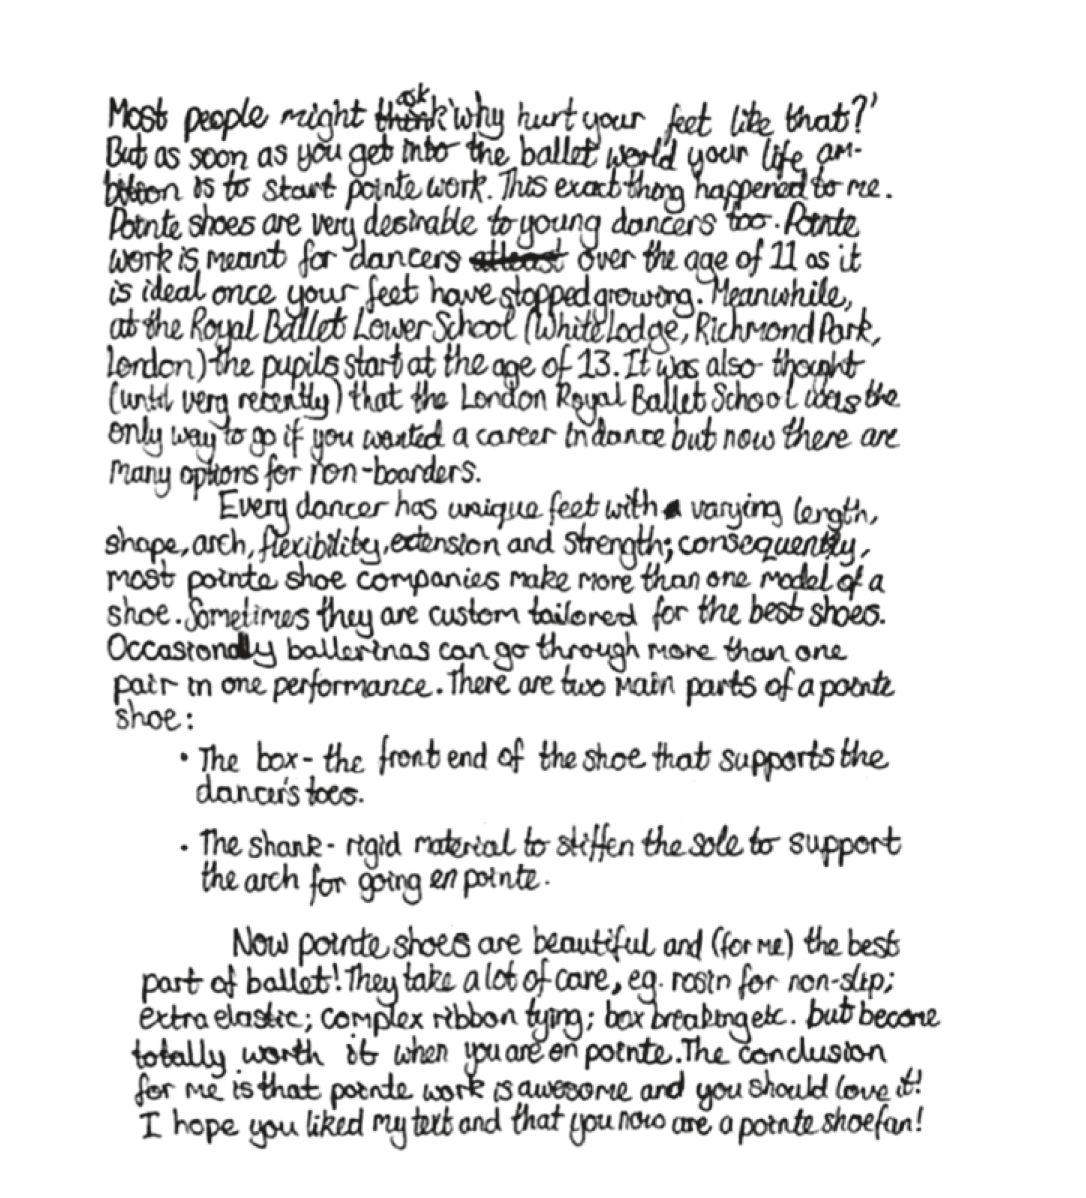 Most people might ask 'why hurt your feet like that?'
But as soon as you get into the ballet world your life am-
bition is to start pointe work. This exact thing happened to me.
Pointe shoes are very desirable to young dancers too. Pointe
work is meant for dancers over the age of 11 as it
is ideal once your feet have stopped growing. Meanwhile,
at the Royal Ballet Lower School (White Lodge, Richmond Park,
London) the pupils start at the age of 13. It was also thought
(until very recently) that the London Royal Ballet School was the
only way to go if you wanted a career in dance but now there are
many options for non-boarders.
Every dancer has unique feet with varying length,
shape, arch, flexibility, extension and strength; consequently,
most pointe shoe companies make more than one model of a
shoe. Sometimes they are custom tailored for the best shoes.
Occasionally ballerinas can go through more than one
pair in one performance. There are two main parts of a pointe
shoe:
• The box - the front end of the shoe that supports the
dancer's toes.
• The shank - rigid material to stiffen the sole to support
the arch for going en pointe.
Now pointe shoes are beautiful and (for me) the best
part of ballet! They take a lot of care, eg. rosin for non-slip;
extra elastic; complex ribbon tying; box breaking etc. but become
totally worth it when you are en pointe. The conclusion
for me is that pointe work is awesome and you should love it!
I hope you liked my text and that you now are a pointe shoe fan!